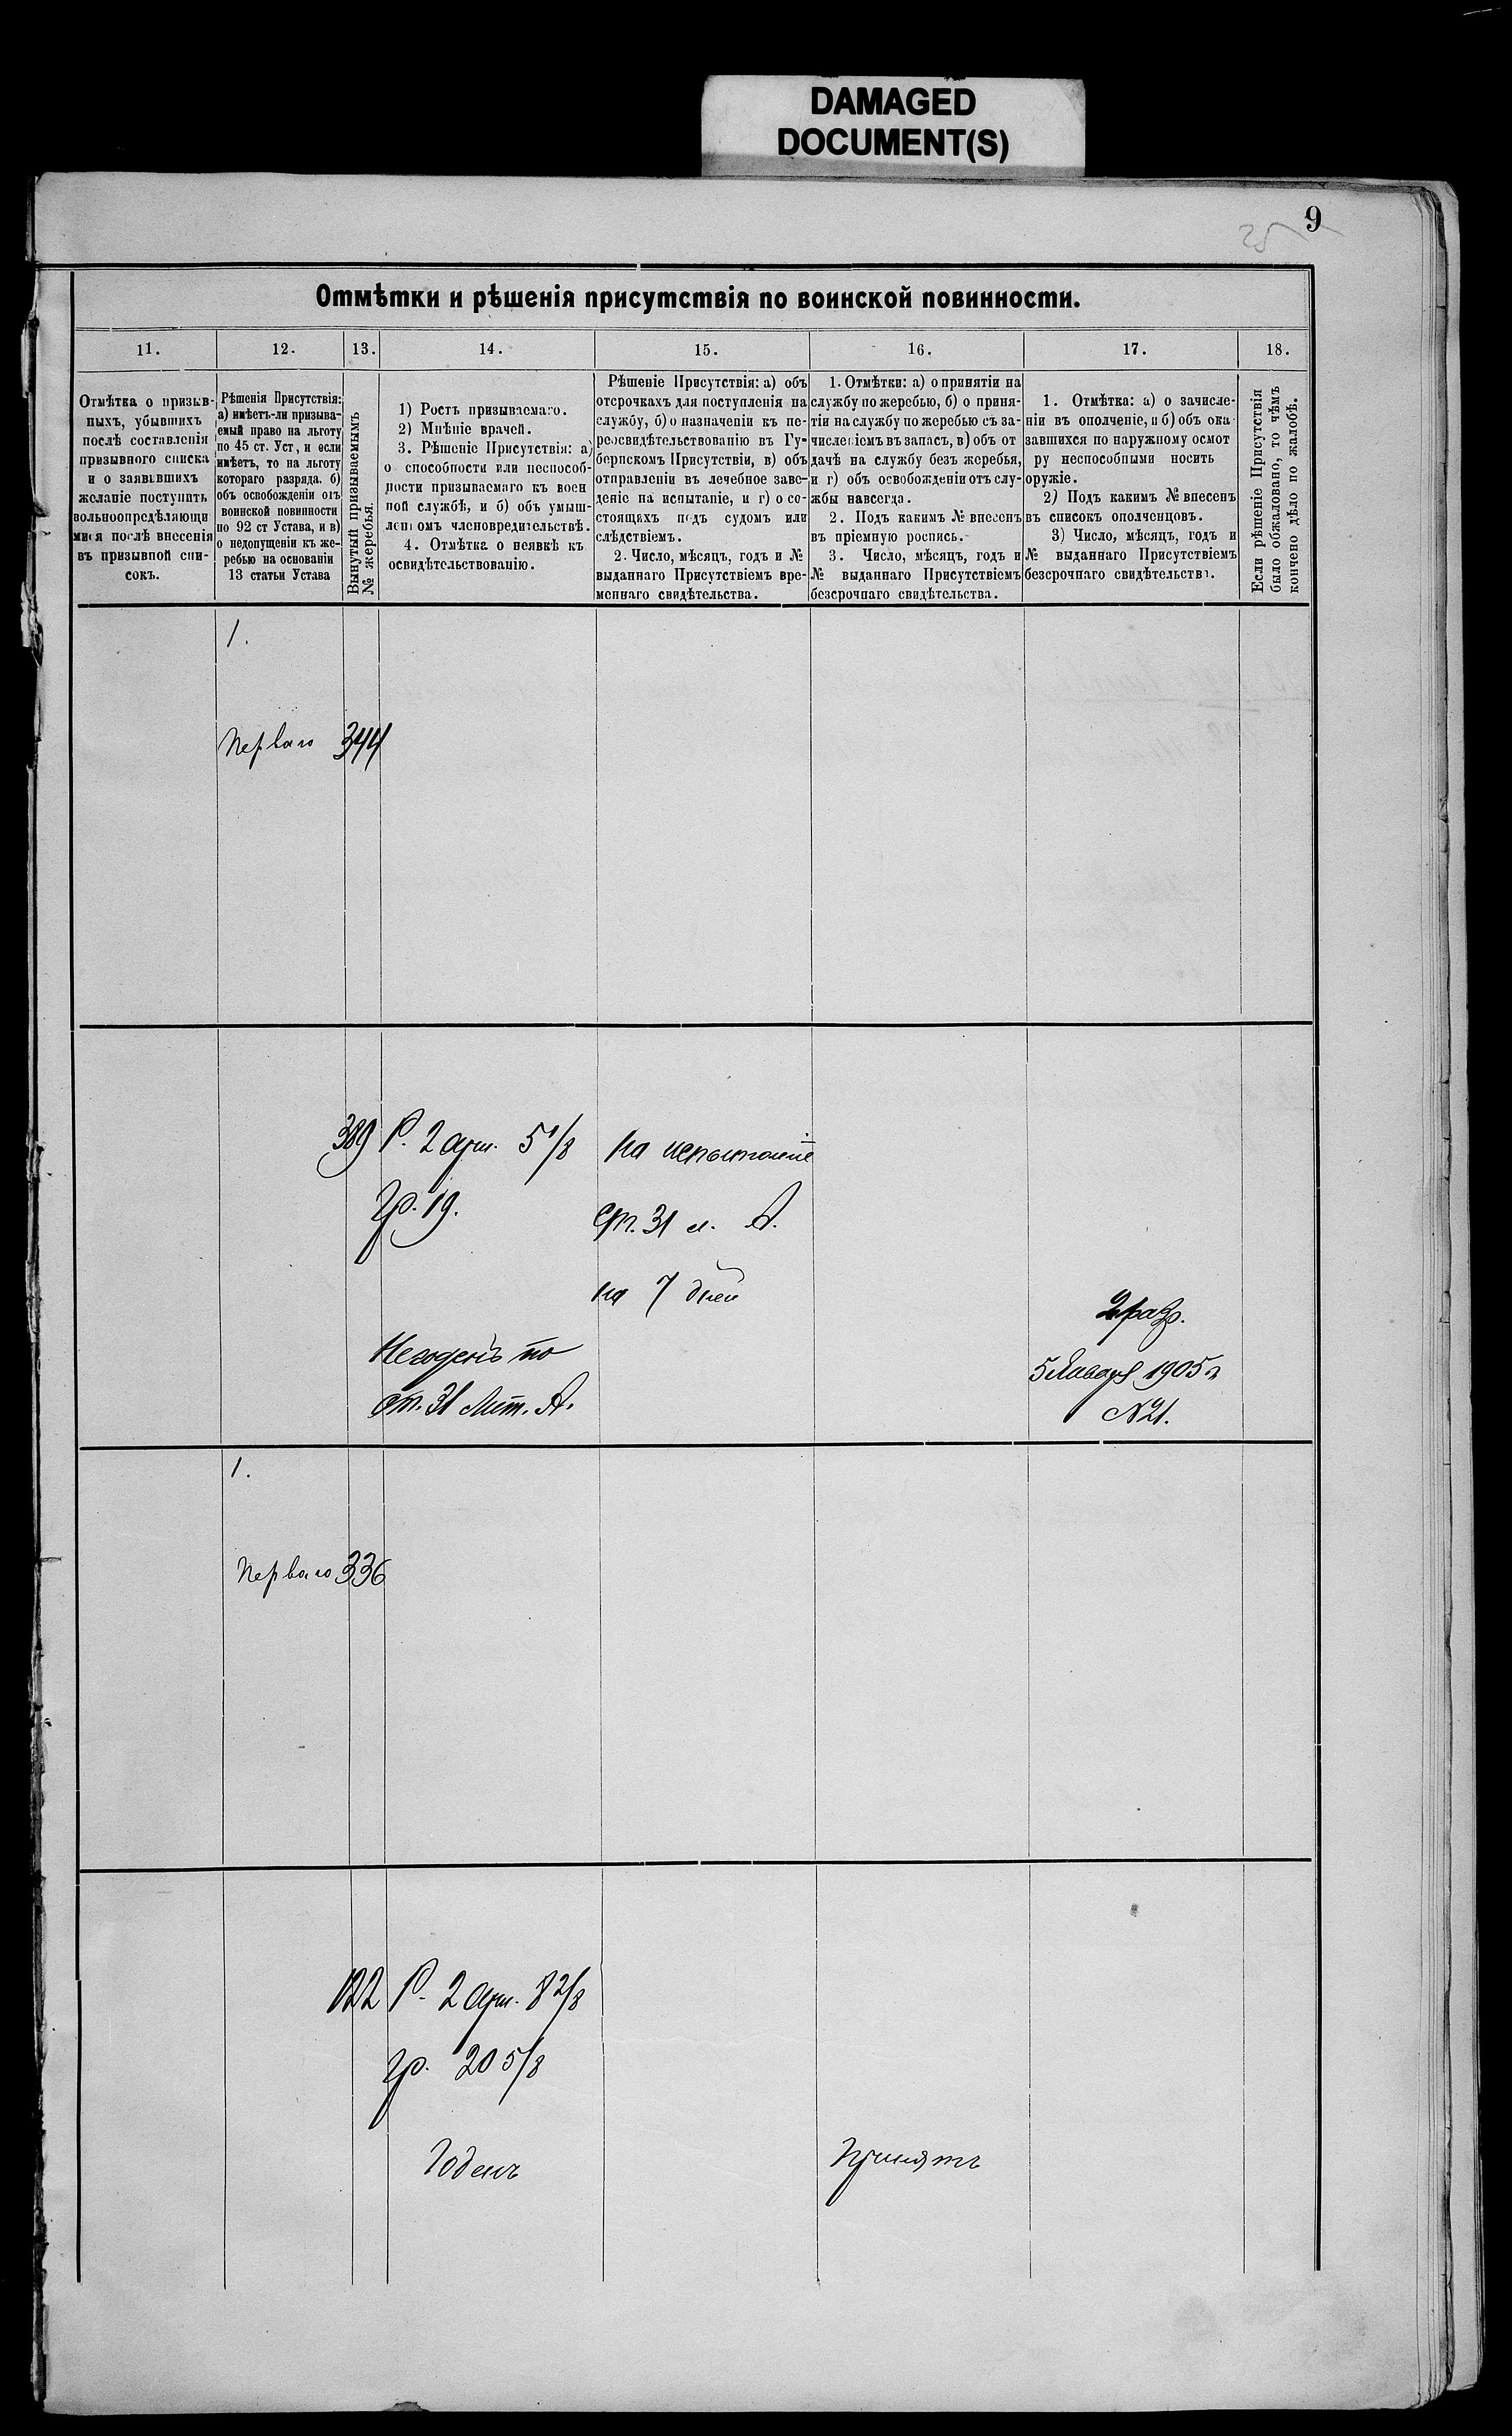 DAMAGED
DOCUMENT(S)
9
25
Отмѣтки и рѣшенія присутствія по воинской повинности.
11.
12.
13.
14.
15.
16.
17.
18.
Отмѣтка о призыв-
ныхъ, убывшихъ
послѣ составленія
призывного списка
и о заявившихъ
желаніе поступить
вольноопредѣляющи
мися послѣ внесенія
въ призывной спи-
сокъ.
Рѣшенія Присутствія:
а) имѣетъ-ли призыва-
емый право на льготу
по 45 ст. Уст, и если
имѣетъ, то на льготу
котораго разряда. б)
объ освобожденіи отъ
воинской повинности
по 92 ст Устава, и в)
о недопущеніи къ же-
ребью на основаніи
13 статьи Устава
Вынутый призываемымъ
№ жеребья.
1) Ростъ призываемаго.
2) Мнѣніе врачей.
3. Рѣшеніе Присутствія: а)
о способности или неспособ-
ности призываемаго къ воен
ной службѣ, и б) объ умыш-
ленномъ членовредительствѣ.
4. Отмѣтка о неявкѣ къ
освидѣтельствованію.
Рѣшеніе Присутствія: а) объ
отсрочкахъ для поступленія на
службу, б) о назначеніи къ пе-
реосвидѣтельствованію въ Гу-
бернскомъ Присутствіи, в) объ
отправленіи въ лечебное заве-
деніе на испытаніе, и г) о со-
стоящихъ подъ судомъ или
слѣдствіемъ.
2. Число, мѣсяцъ, годъ и №
выданнаго Присутствіемъ вре-
меннаго свидѣтельства.
1. Отмѣтки: а) о принятіи на
службу по жеребью, б) о приня-
тіи на службу по жеребью съ за-
численіемъ въ запасъ, в) объ от
дачѣ на службу безъ жеребья,
и г) объ освобожденіи отъ слу-
жбы навсегда.
2. Подъ какимъ № внесенъ
въ пріемную роспись.
3. Число, мѣсяцъ, годъ и
№ выданнаго Присутствіемъ
безсрочнаго свидѣтельства.
1. Отмѣтка: а) о зачисле-
ніи въ ополченіе, и б) объ ока
завшихся по наружному осмот
ру неспособными носить
оружіе.
2) Подъ какимъ № внесенъ
въ списокъ ополченцовъ.
3) Число, мѣсяцъ, годъ и
№ выданнаго Присутствіемъ
безсрочнаго свидѣтельства.
Если рѣшеніе Присутствія
было обжаловано, то чѣмъ
кончено дѣло по жалобѣ.
1.
Перваго 344
389 Р. 2 арш. 5 1/8
гр. 19.
Негоденъ по
ст. 31 Лит. А.
на испытаніе
ст. 31 л. А.
на 7 дней
2 разр.
5 Января 1905 г
№ 21.
1.
Перваго 336
122 Р. 2 арш. 8 2/8
гр. 20 5/8
Годенъ
Принятъ